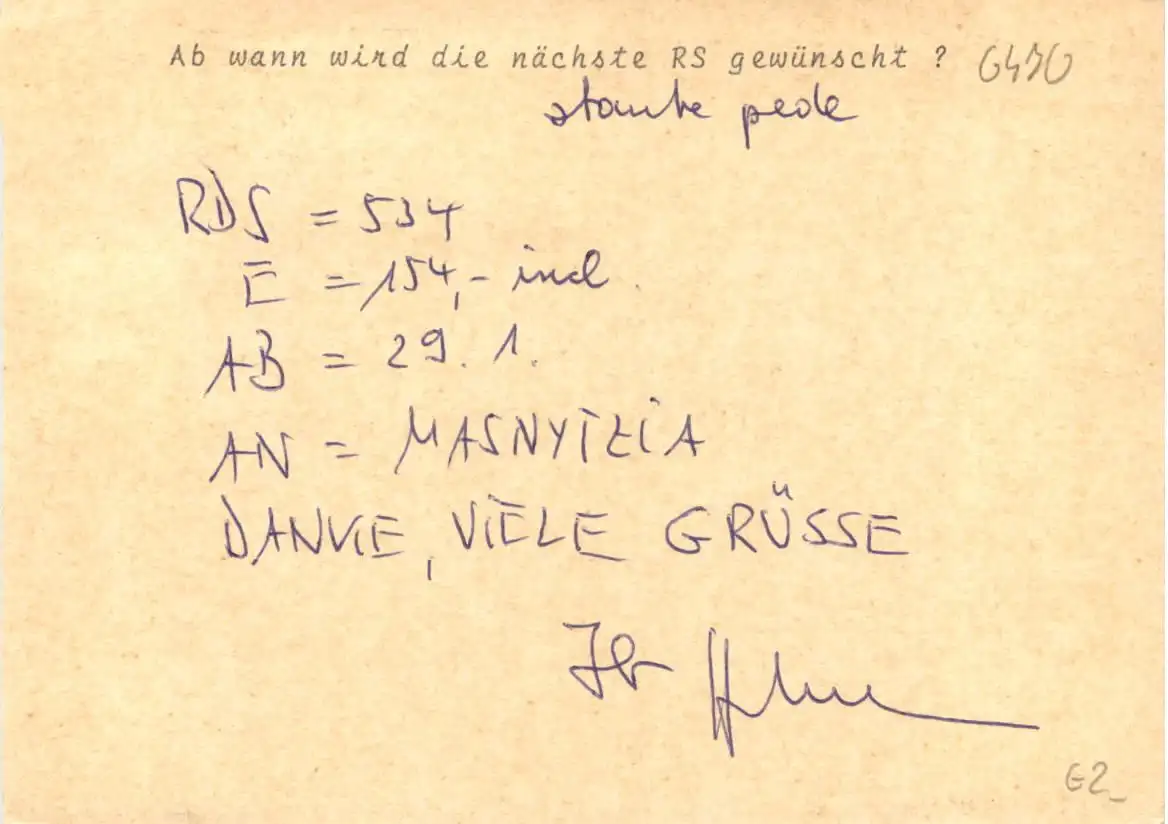 Ab wann wird die nächste RS gewünscht ?
staube pede
RDS = 534
E = 154,- incl.
AB = 29. 1.
AN =
DANKE, VIELE GRÜSSE
Ihr